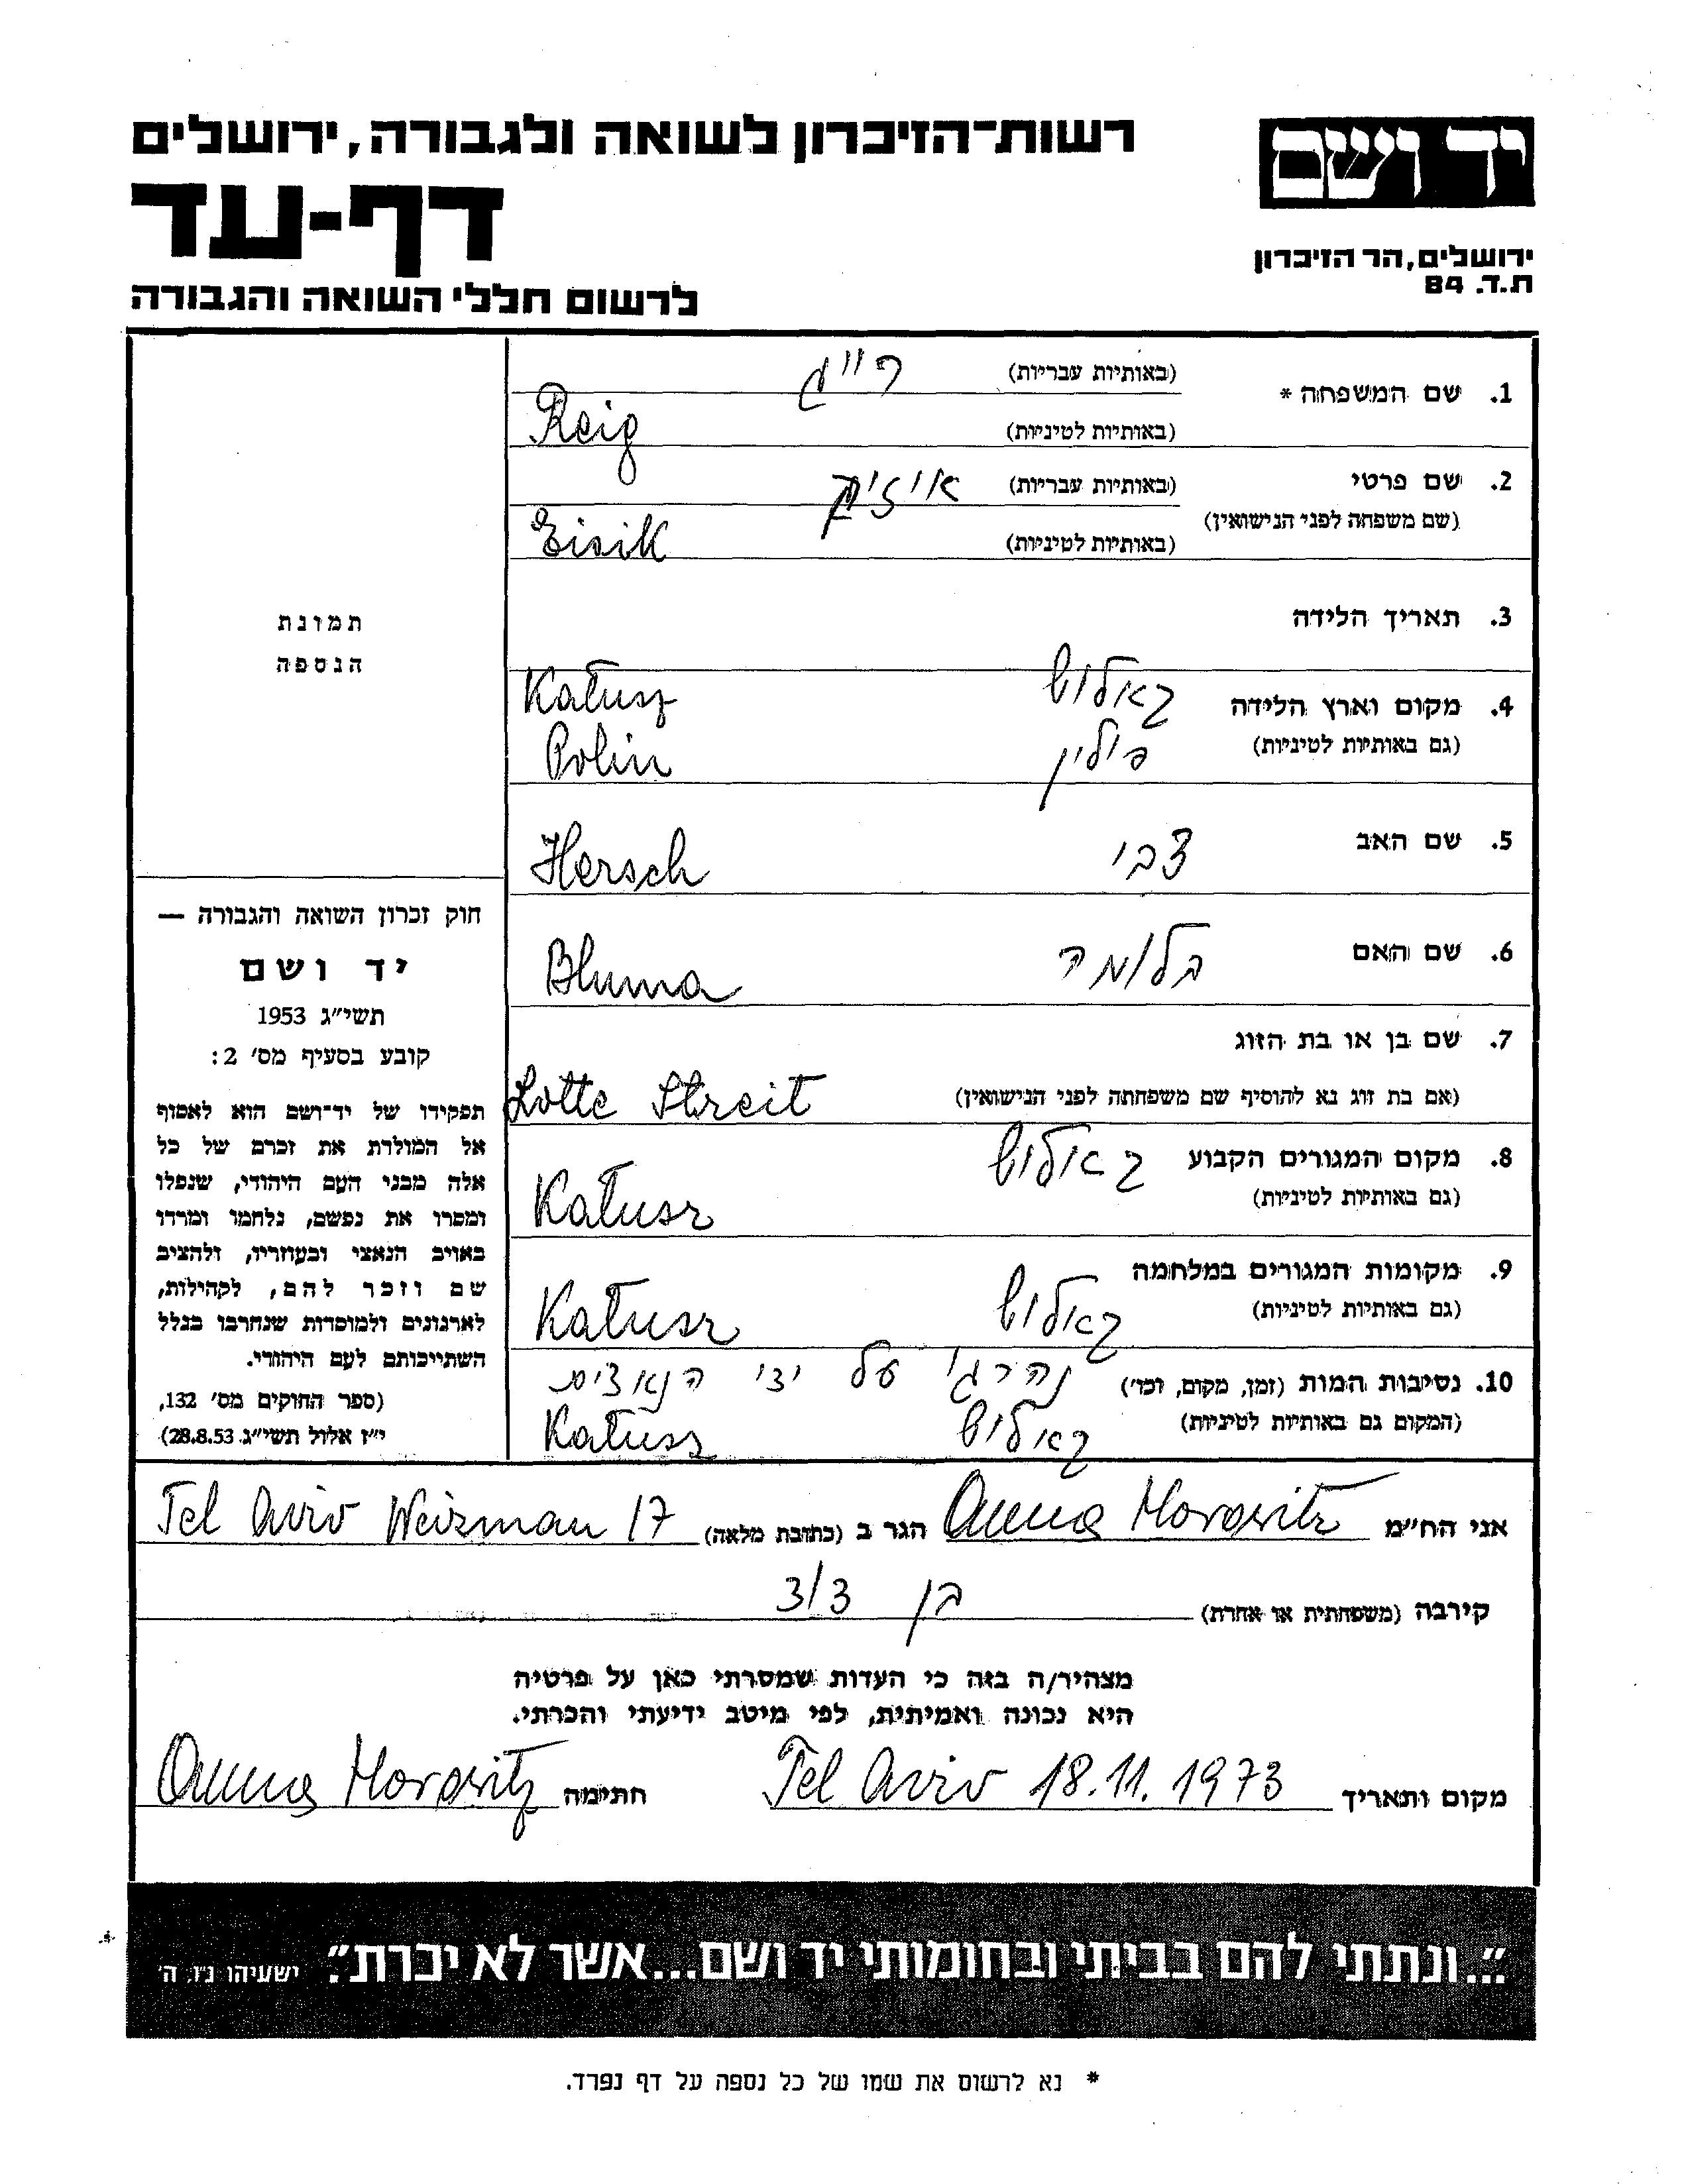 רשות־הזיכרון לשואה ולגבורה, ירושלים
דף-עד
לרשום חללי השואה והגבורה
יד ושם
ירושלים, הר הזיכרון
ת.ד. 84
1. שם המשפחה * (באותיות עבריות) רייג
(באותיות לטיניות) Reig
2. שם פרטי (באותיות עבריות) אייזיק
(שם משפחה לפני הנישואין)
(באותיות לטיניות) Eisik
3. תאריך הלידה
4. מקום וארץ הלידה קאלוש Kałusz
(גם באותיות לטיניות) פולין Polin
5. שם האב צבי Hersch
6. שם האם בלומה Bluma
7. שם בן או בת הזוג
(אם בת זוג נא להוסיף שם משפחתה לפני הנישואין) Lotte Streit
8. מקום המגורים הקבוע קאלוש
(גם באותיות לטיניות) Kałusz
9. מקומות המגורים במלחמה קאלוש
(גם באותיות לטיניות) Kałusz
10. נסיבות המות (זמן, מקום, וכו') נהרג על ידי הנאצים
(המקום גם באותיות לטיניות) קאלוש Kałusz
תמונת
הנספה
חוק זכרון השואה והגבורה —
יד ושם
תשי״ג 1953
קובע בסעיף מס׳ 2:
תפקידו של יד־ושם הוא לאסוף
אל המולדת את זכרם של כל
אלה מבני העם היהודי, שנפלו
ומסרו את נפשם, נלחמו ומרדו
באויב הנאצי ובעוזריו, ולהציב
שם וזכר להם, לקהילות,
לארגונים ולמוסדות שנחרבו בגלל
השתייכותם לעם היהודי.
(ספר החוקים מס׳ 132,
י״ז אלול תשי״ג 28.8.53)
אני הח״מ Anna Horowitz הגר ב (כתובת מלאה) Tel Aviv Weizman 17
קירבה (משפחתית או אחרת) בן דוד
מצהיר/ה בזה כי העדות שמסרתי כאן על פרטיה
היא נכונה ואמיתית, לפי מיטב ידיעתי והכרתי.
מקום ותאריך Tel Aviv 18.11.1973 חתימה Anna Horowitz
״...ונתתי להם בביתי ובחומותי יד ושם...אשר לא יכרת״. ישעיהו נ״ו, ה׳
* נא לרשום את שמו של כל נספה על דף נפרד.